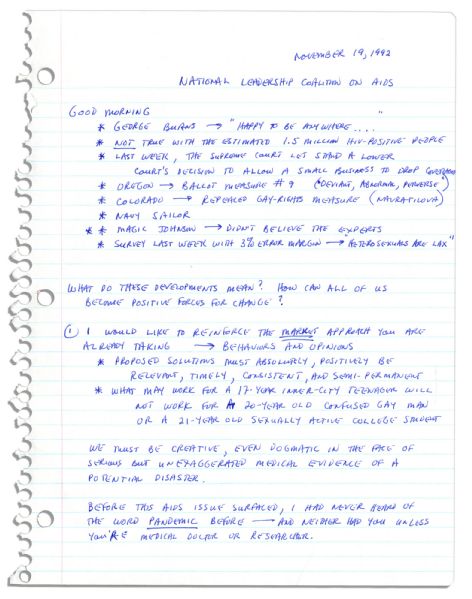 NOVEMBER 19, 1992
NATIONAL LEADERSHIP COALITION ON AIDS
GOOD MORNING
* GEORGE BURNS → "HAPPY TO BE ANYWHERE...."
* NOT TRUE WITH THE ESTIMATED 1.5 MILLION HIV-POSITIVE PEOPLE
* LAST WEEK, THE SUPREME COURT LET STAND A LOWER
COURT'S DECISION TO ALLOW A SMALL BUSINESS TO DROP COVERAGE
* OREGON → BALLOT MEASURE #9 ("DEVIANT, ABNORMAL, PERVERSE")
* COLORADO → REPEALED GAY-RIGHTS MEASURE (NAVRATILOVA)
* NAVY SAILOR
* MAGIC JOHNSON → DIDN'T BELIEVE THE EXPERTS
* SURVEY LAST WEEK WITH 3% ERROR MARGIN → "HETEROSEXUALS ARE LAX"
WHAT DO THESE DEVELOPMENTS MEAN? HOW CAN ALL OF US
BECOME POSITIVE FORCES FOR CHANGE?
① I WOULD LIKE TO REINFORCE THE MARKET APPROACH YOU ARE
ALREADY TAKING → BEHAVIORS AND OPINIONS
* PROPOSED SOLUTIONS MUST ABSOLUTELY, POSITIVELY BE
RELEVANT, TIMELY, CONSISTENT, AND SEMI-PERMANENT
* WHAT MAY WORK FOR A 17-YEAR INNER-CITY TEENAGER WILL
NOT WORK FOR A 20-YEAR OLD CONFUSED GAY MAN
OR A 21-YEAR OLD SEXUALLY ACTIVE COLLEGE STUDENT
WE MUST BE CREATIVE, EVEN DOGMATIC IN THE FACE OF
SERIOUS BUT UNEXAGGERATED MEDICAL EVIDENCE OF A
POTENTIAL DISASTER.
BEFORE THIS AIDS ISSUE SURFACED, I HAD NEVER HEARD OF
THE WORD PANDEMIC BEFORE → AND NEITHER HAD YOU UNLESS
YOU'RE MEDICAL DOCTOR OR RESEARCHER.